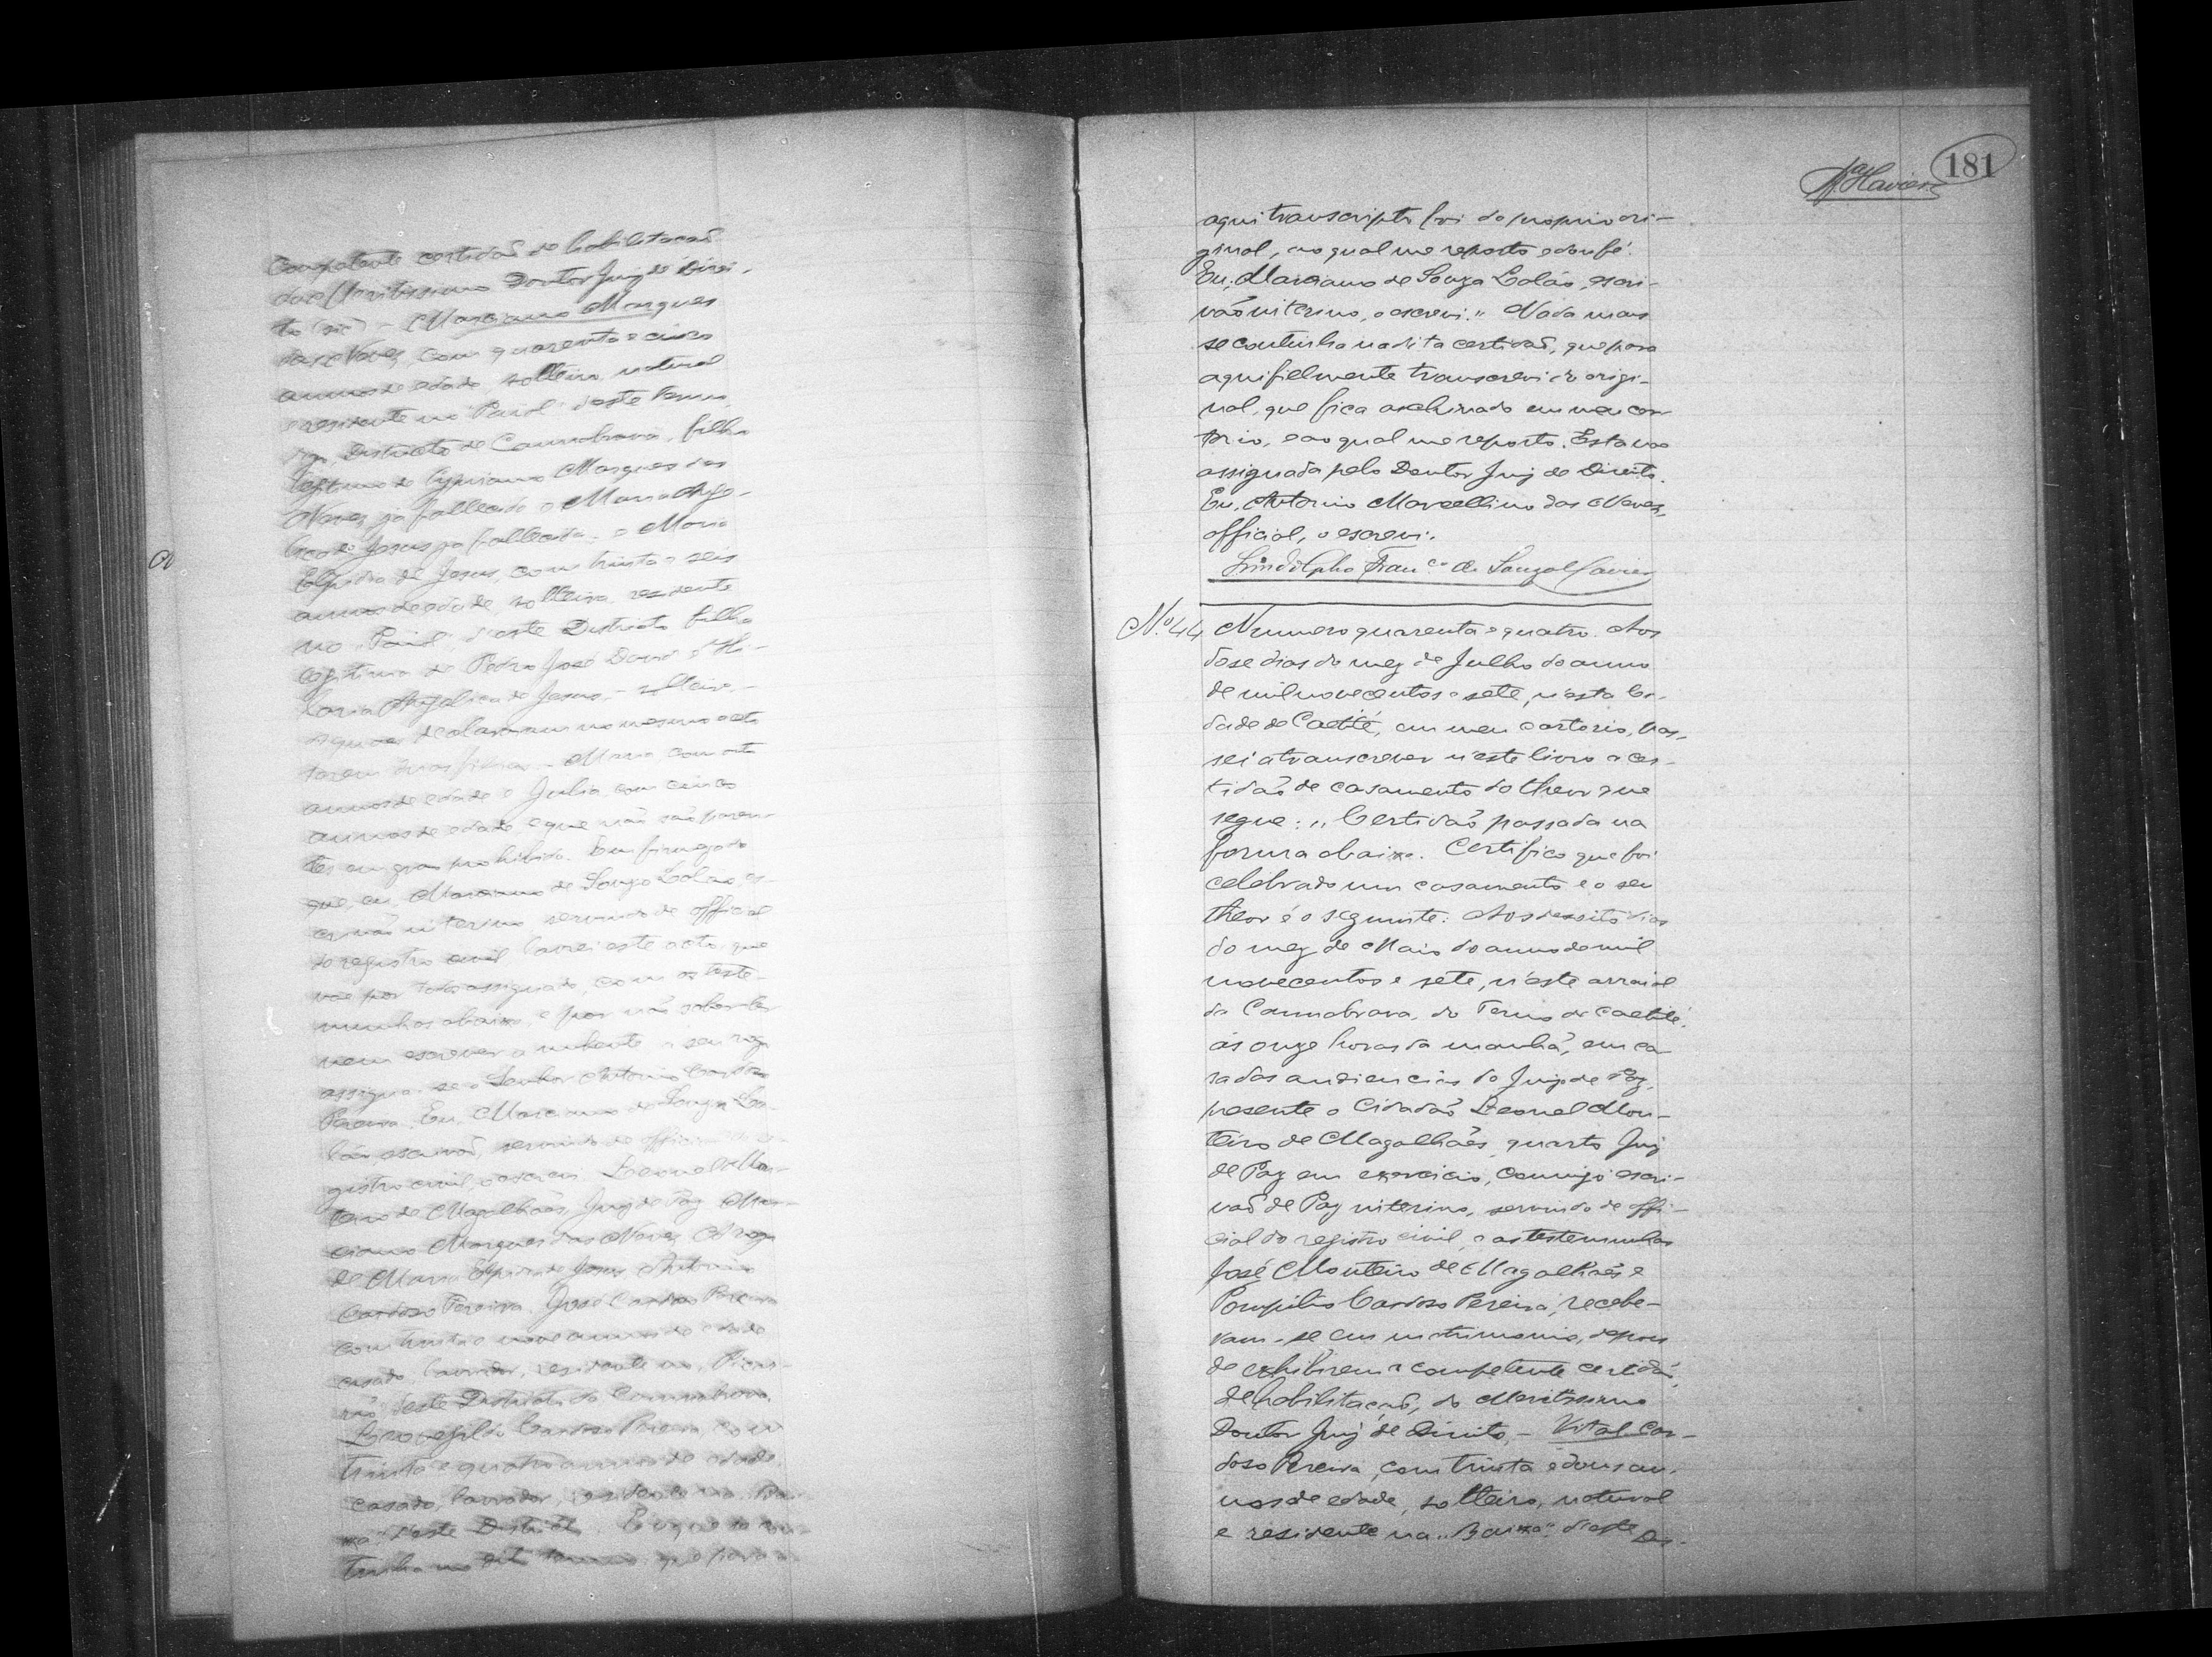 Competente certidaõ de habilitacaõ
do Meritissimo Doutor Juiz de Direi-
to (sic) - Marciano Marques
das Neves, com quarenta e cinco
annos de edade, solteiro, natural
e residente no "Paiol" deste Termo,
Districto de Cannabrava, filho
legitimo de Cypriano Marques das
Neves, já fallecido e Maria Ange-
lica de Jesus já fallecida; e Maria
de Jesus, com trinta e seis
annos de edade, solteira, residente
no "Paiol", d'este Districto filha
legitima de Pedro José David e Hi-
laria Angelica de Jesus, - solteira, -
declararam no mesmo acto
terem duas filhas - Maria com oito
annos de edade e Julia com cinco
annos de edade, e que não são paren-
tes em grau prohibido. Em firmeza do
que, eu, Marciano de Souza Lolão, es-
crivaõ interino servindo de official
do registro civil lavrei este acto, que
vae por todos assignado, com as teste-
munhas abaixo, e por não saber ler
nem escrever a nubente a seu rogo
assigna-se o Senhor Antonio Cardoso
Pereira. Eu, Marciano de Souza Lo-
lão, escrivaõ, servindo de official do re-
gistro civil, o escrevi. Leonel Mon-
teiro de Magalhães, Juiz de Paz. Mar-
ciano Marques das Neves. A rogo
de Maria de Jesus Antonio
Cardoso Pereira. José Cardoso Pereira
com trinta e nove annos de edade
casado, lavrador, residente no
deste Districto de Cannabrava.
Cardoso Pereira, com
trinta e quatro annos de edade,
casado, lavrador, residente na "Bai-
xa" d'este Districto. E o que se con-
tinha no dito termo, que para
181
aqui transcripto foi do proprio ori-
ginal, ao qual me reporto e dou fé.
Eu, Marciano de Souza Lolão, escri-
vaõ interino, o escrevi." Nada mais
se continha na dita certidaõ, que para
aqui fielmente transcrevi do origi-
nal, que fica archivado em meu car-
torio, e ao qual me reporto. Estava
assignada pelo Doutor Juiz de Direito.
Eu, Antonio Marcellino das Neves,
official, o escrevi.
Lindolpho Fran.co de Souza Xavier
N.º 44 Numero quarenta e quatro. Aos
dose dias do mez de Julho do anno
de mil novecentos e sete, n'esta Ci-
dade de Caetité, em meu cartorio, pas-
sei a transcrever n'este livro a cer-
tidaõ de casamento do theor que
segue: "Certidaõ passada na
forma abaixo. Certifico que foi
celebrado um casamento e o seu
theor é o seguinte: Aos desoito dias
do mez de Maio do anno de mil
novecentos e sete, n'este arraial
da Cannabrava, do Termo de Caetité,
ás onze horas da manhã, em ca-
sa das audiencias do Juiz de Paz,
presente o Cidadaõ Leonel Mon-
teiro de Magalhães, quarto Juiz
de Paz em exercicio, comigo escri-
vaõ de Paz interino, servindo de offi-
cial do registro civil, e as testemunhas
José Monteiro de Magalhães e
Pompilio Cardoso Pereira, recebe-
ram-se em matrimonio, depois
de exhibirem a competente certidaõ
de habilitacaõ, do Meritissimo
Doutor Juiz de Direito, - Vital Car-
doso Pereira, com trinta e dous an-
nos de edade, solteiro, natural
e residente na "Baixa" d'este Dis-